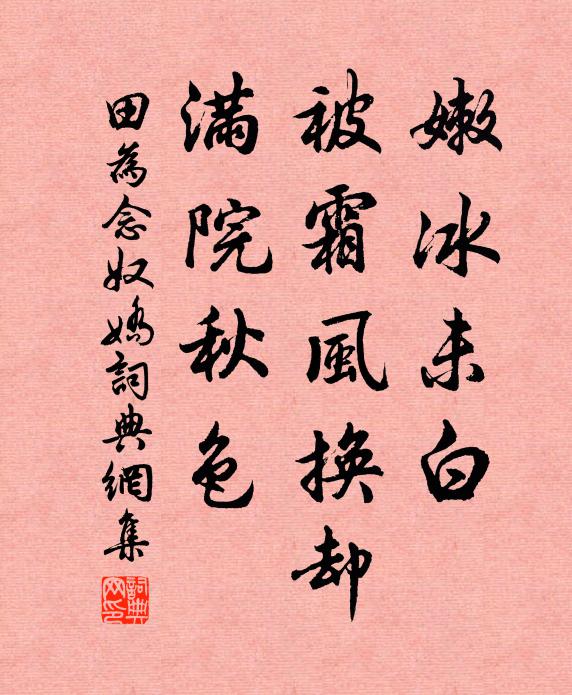 嫩冰未白
被霜風換却
滿院秋色
田為念奴嬌詞典網集
詞典网印